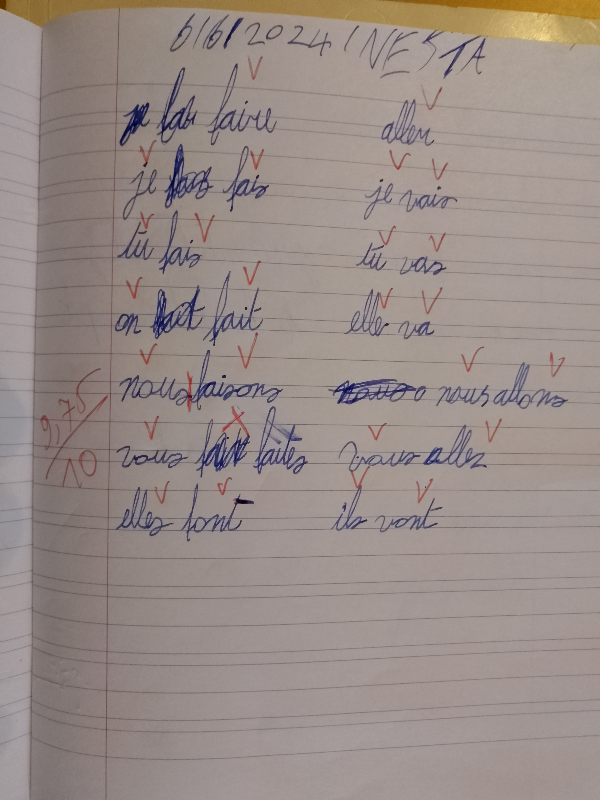 6/6/2024 INESTA
faire aller
je fais je vais
tu fais tu vas
on fait elle va
nous faisons nous allons
vous faites vous allez
elles font ils vont
9,75/10